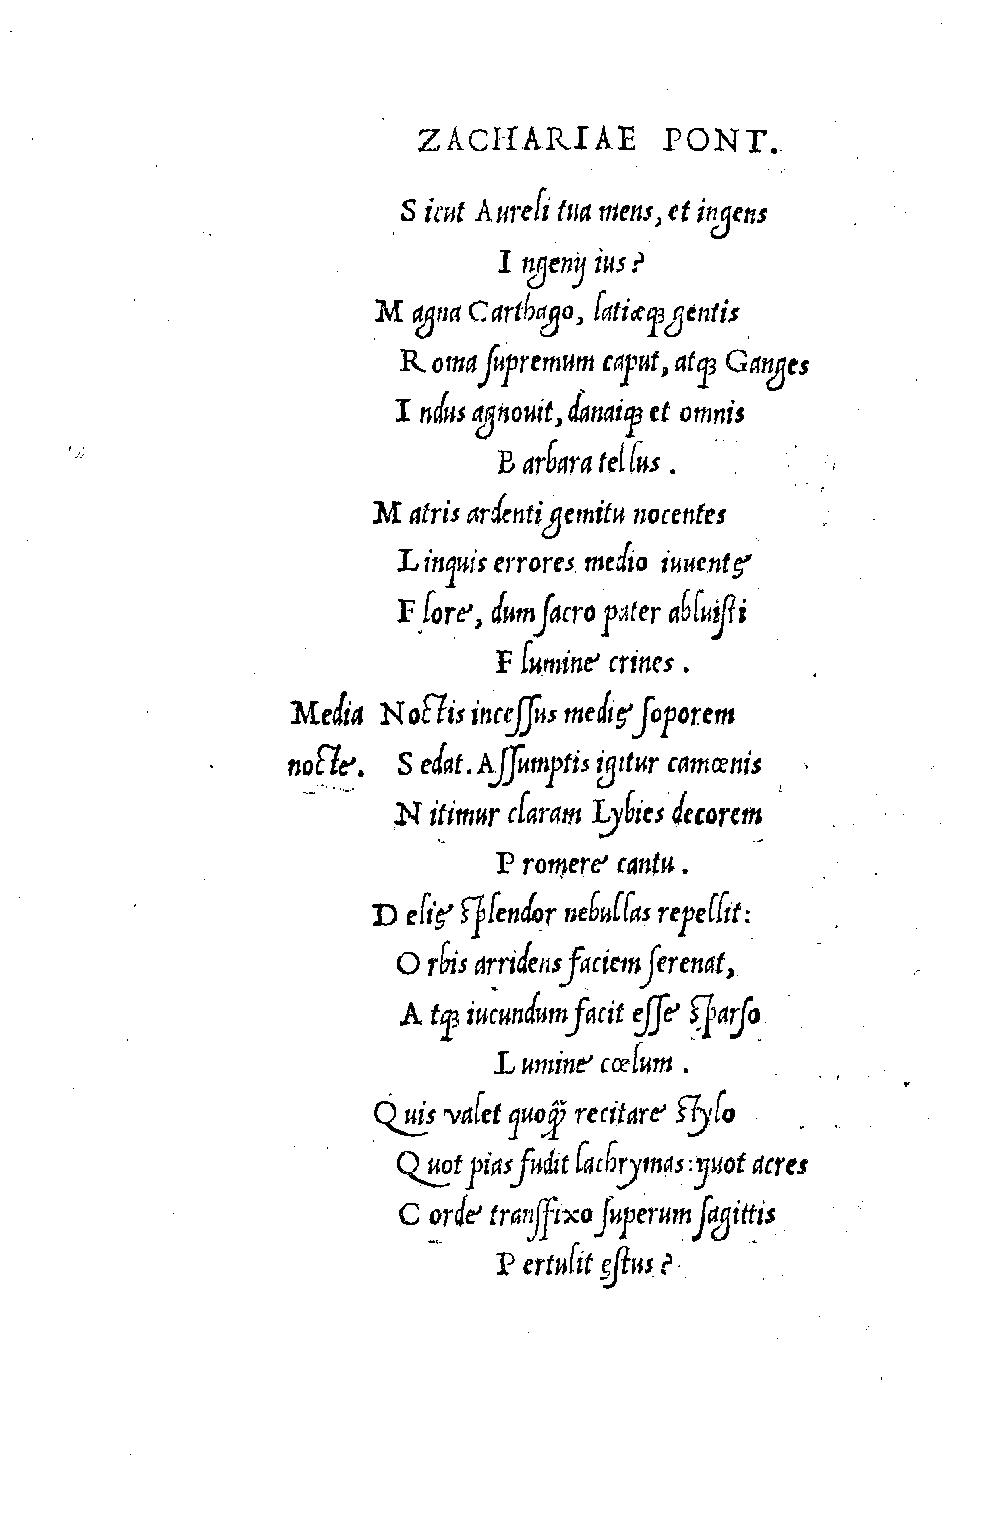 ZACHARIAE PONT.
Sicut Aureli tua mens, et ingens
Ingenij ius?
Magna Carthago, latiæqꝫ gentis
Roma supremum caput, atqꝫ Ganges
Indus agnouit, danaiqꝫ et omnis
Barbara tellus.
Matris ardenti gemitu nocentes
Linquis errores medio iuuentę
Flore, dum sacro pater abluisti
Flumine crines.
Media Noctis incessus medię soporem
nocte. Sedat. Assumptis igitur camœnis
Nitimur claram Lybies decorem
Promere cantu.
Delię splendor nebullas repellit:
Orbis arridens faciem serenat,
Atqꝫ iucundum facit esse sparso
Lumine cœlum.
Quis valet quoqꝫ recitare stylo
Quot pias fudit lachrymas: quot acres
Corde transfixo superum sagittis
Pertulit ęstus?